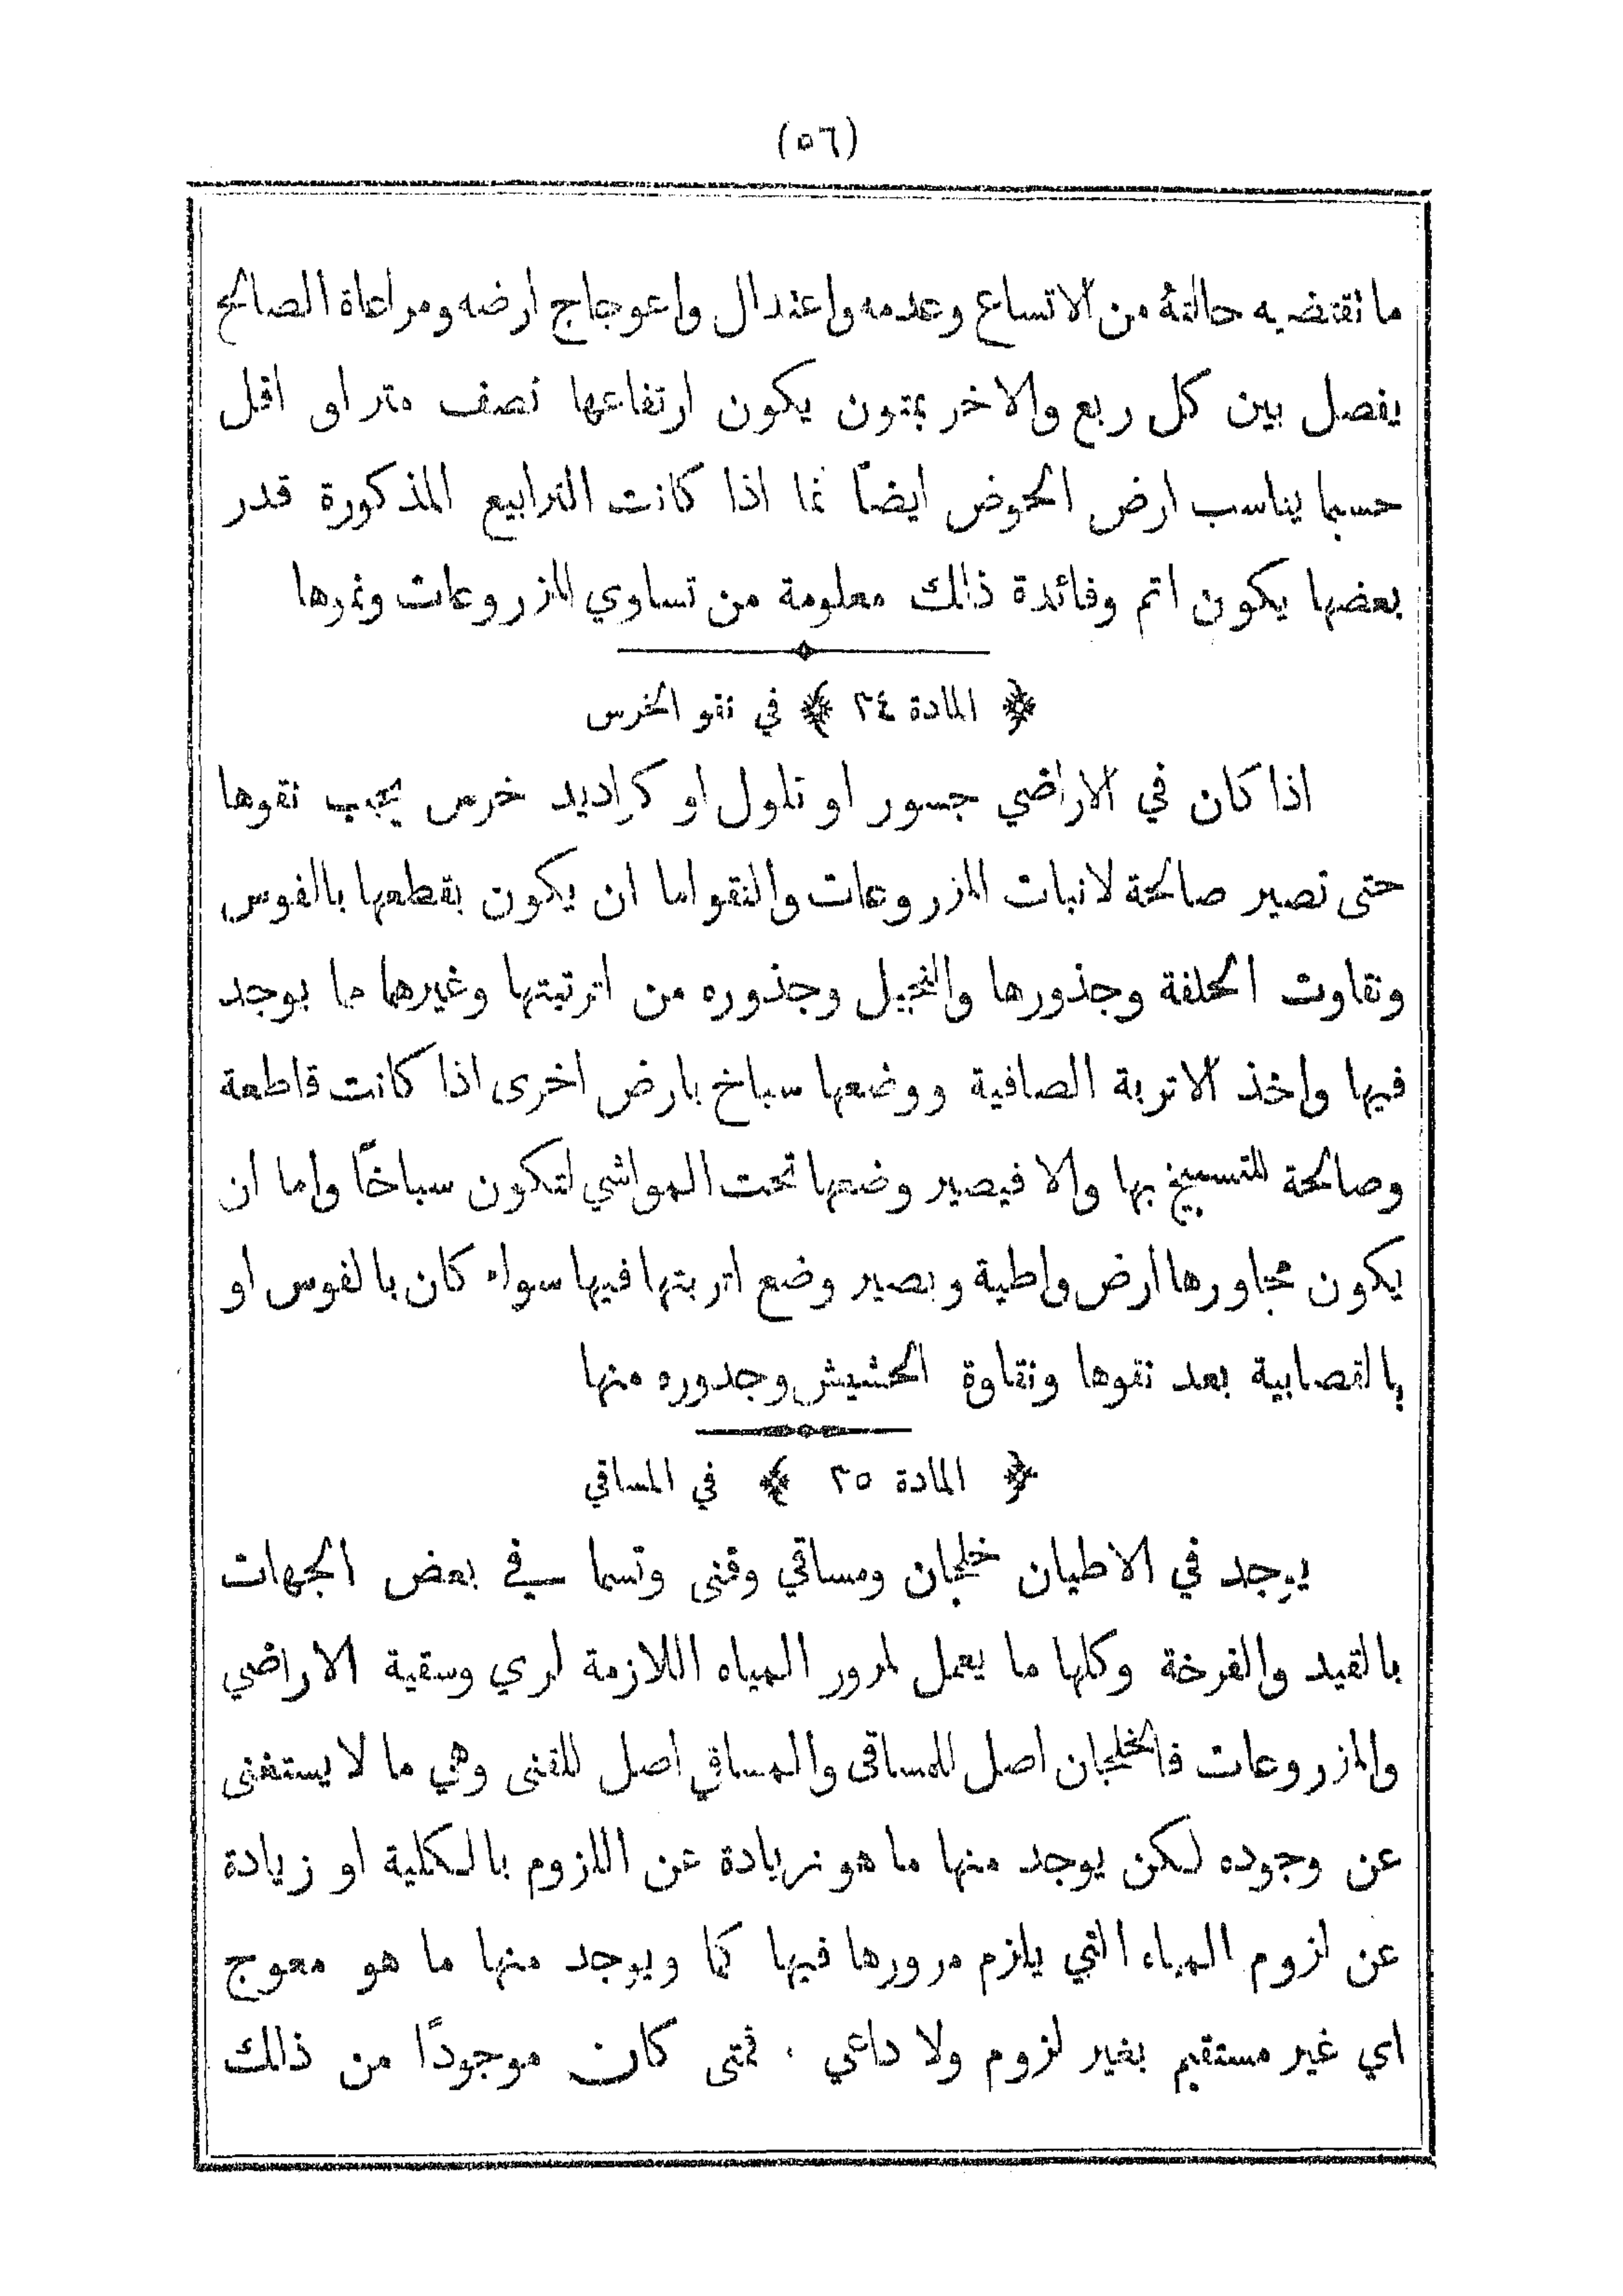 (٥٦)
ما تقتضيه حالتهُ من الاتساع وعدمه واعتدال واعوجاج ارضه ومراعاة الصالح
يفصل بين كل ربع والاخر بمتون يكون ارتفاعها نصف متر او اقل
حسبما يناسب ارض الحوض ايضاً ثما اذا كانت الترابيع المذكورة قدر
بعضها يكون اتم وفائدة ذلك معلومة من تساوي المزروعات ونموها
﴿ المادة ٢٤ ﴾ في نقو الخرس
اذا كان في الاراضي جسور او تلول او كراديد خرس يجب نقوها
حتى تصير صالحة لانبات المزروعات والنقو اما ان يكون بقطعها بالفوس
ونقاوت الحلفة وجذورها والنجيل وجذوره من اتربتها وغيرهما مما يوجد
فيها واخذ الاتربة الصافية ووضعها سباخ بارض اخرى اذا كانت قاطعة
وصالحة للتسبيخ بها والا فيصير وضعها تحت المواشي لتكون سباخاً واما ان
يكون مجاورها ارض واطية ويصير وضع اتربتها فيها سواء كان بالفوس او
بالقصابية بعد نقوها ونقاوة الحشيش وجدوره منها
﴿ المادة ٢٥ ﴾ في المساقي
يوجد في الاطيان خلجان ومساقي وقنى وتسما في بعض الجهات
بالقيد والفرخة وكلها ما يعمل لمرور المياه اللازمة لري وسقية الاراضي
والمزروعات فالخلجان اصل للمساقى والمساقي اصل للقنى وهي ما لا يستغنى
عن وجوده لكن يوجد منها ما هو زيادة عن اللزوم بالكلية او زيادة
عن لزوم المياه التي يلزم مرورها فيها كما ويوجد منها ما هو معوج
اي غير مستقيم بغير لزوم ولا داعي . فمتى كان موجودًا من ذلك